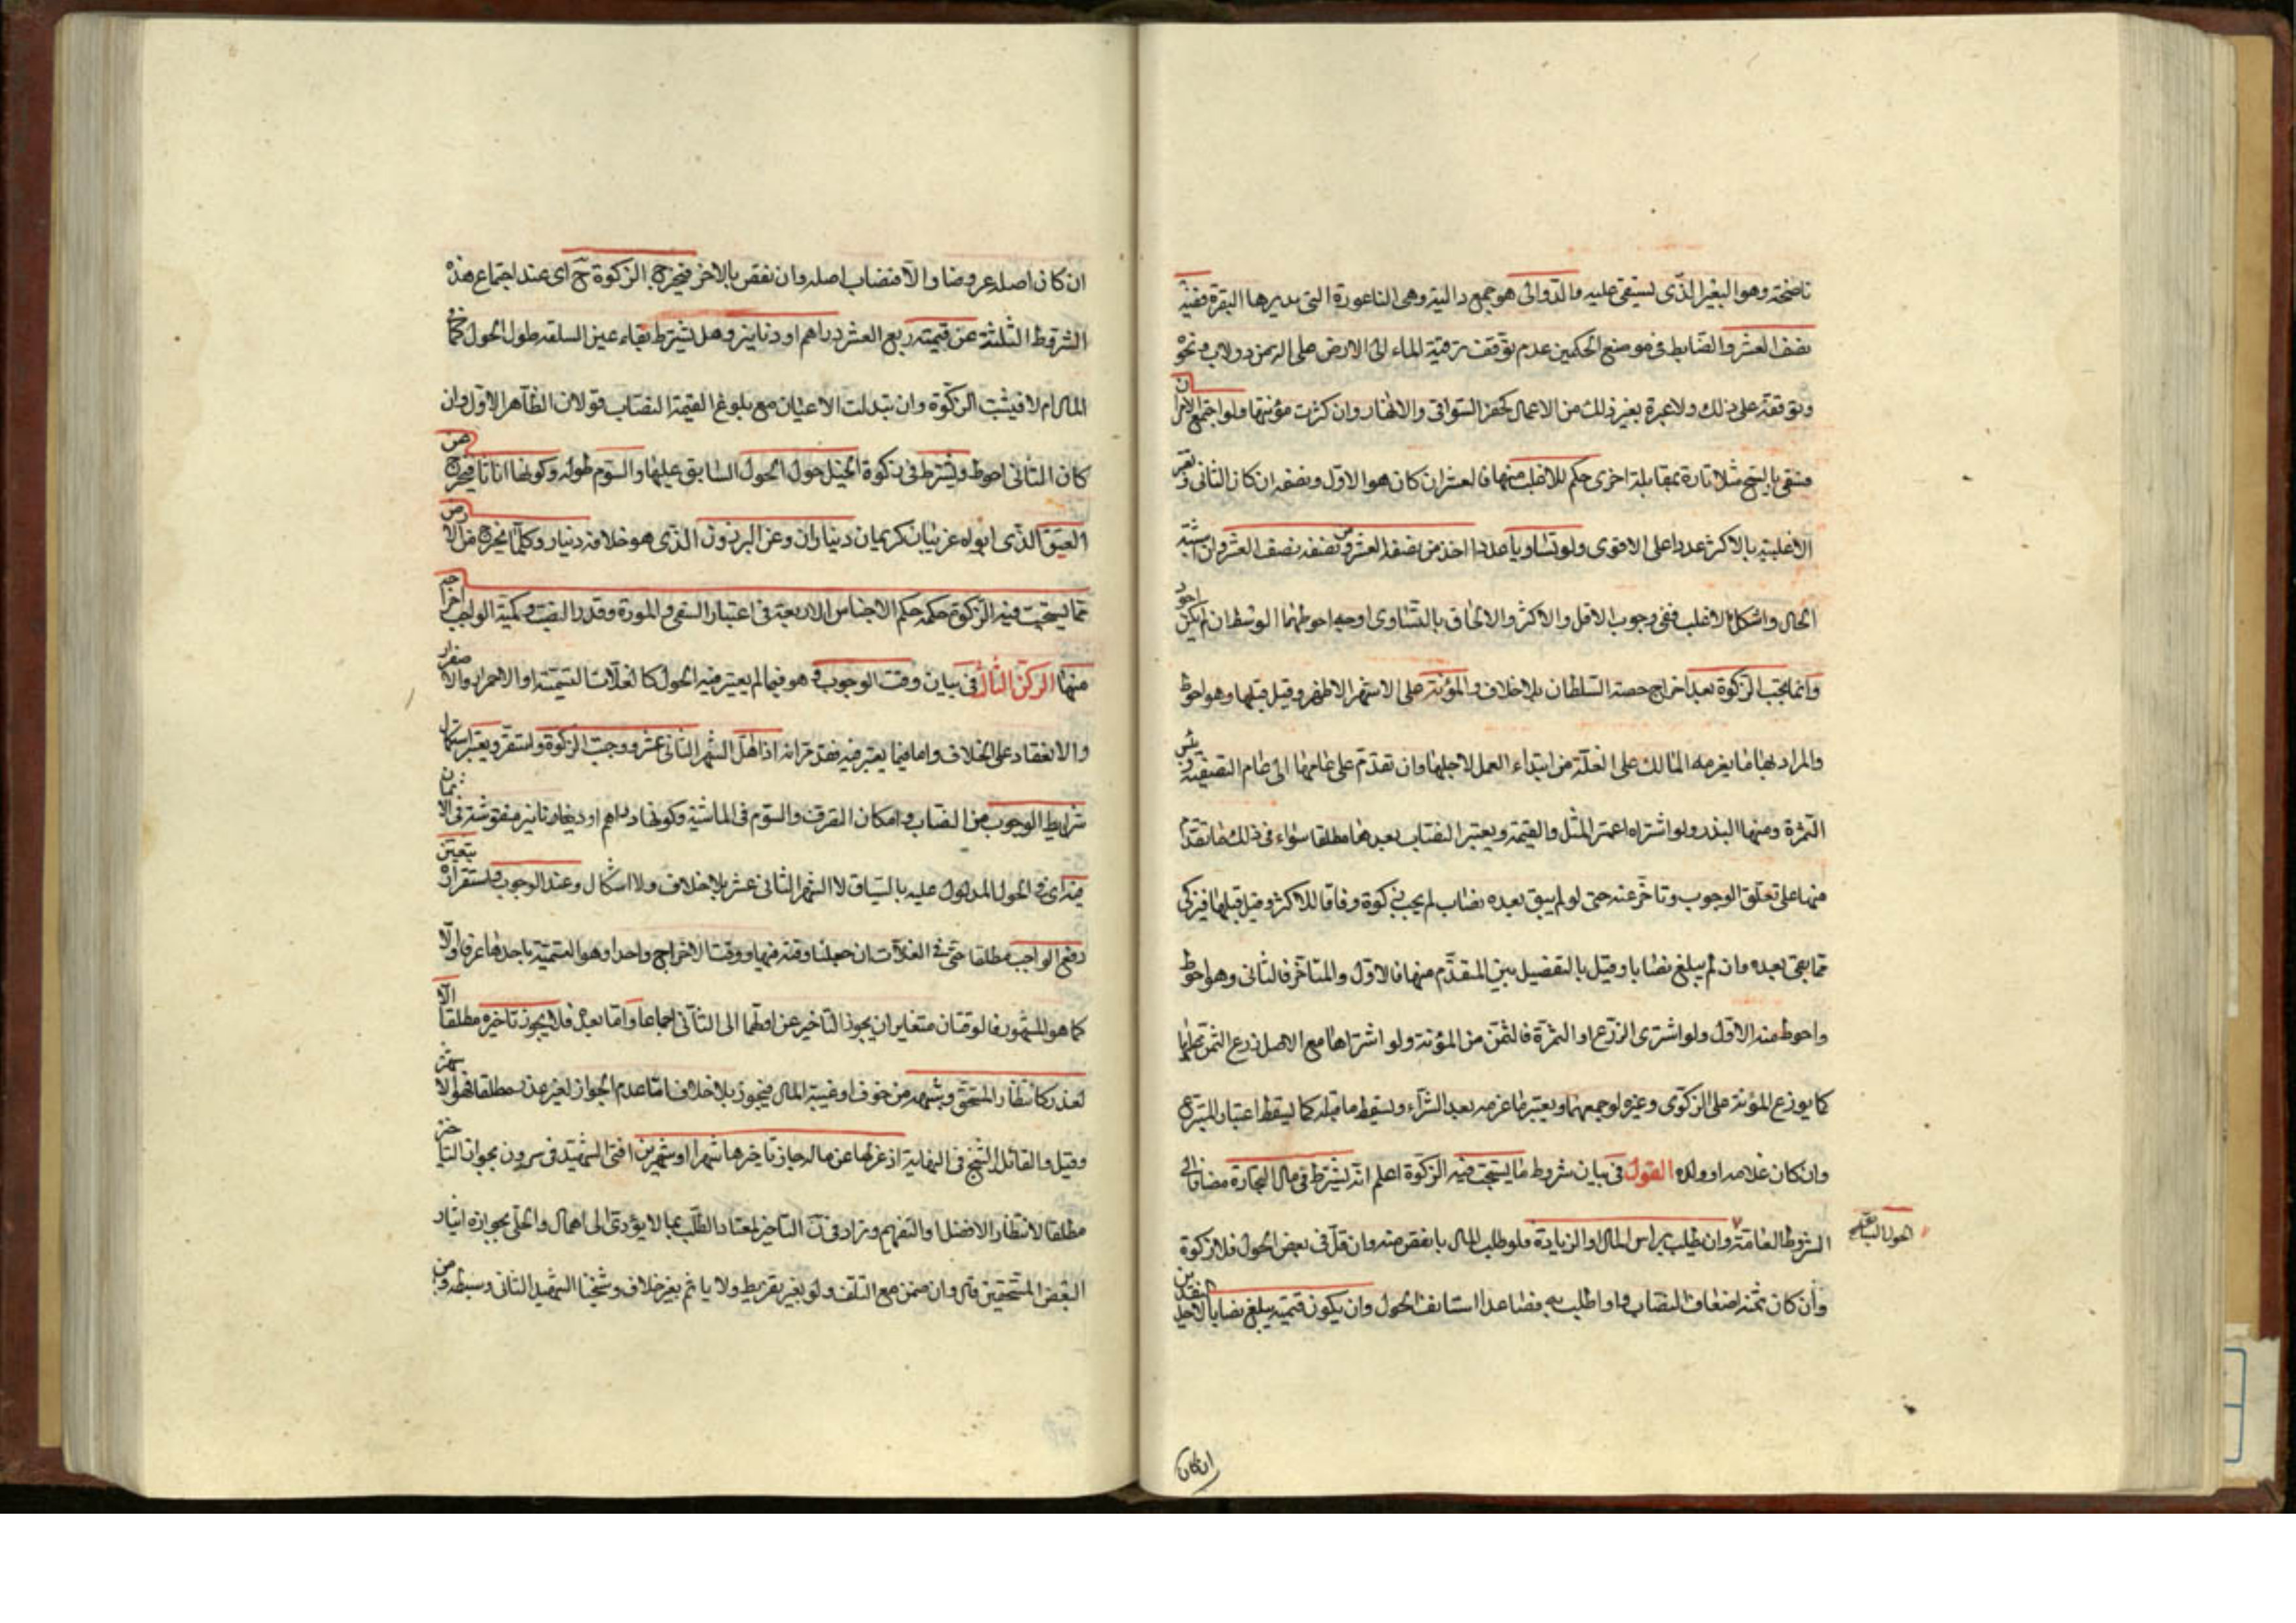 ناضحة وهو البعير الذی يستقی عليه والدوالی هو جمع دالية وهی الناعورة التی يديرها البقرة ففيه
نصف العشر والضابط فی موضع الحكمين عدم توقف ترقية الماء الی الارض علی الة من دولاب ونحوه
وتوقفه علی ذلك ولا عبرة بغير ذلك من الاعمال كحفر السواقی والانهار وان كثرت مؤنتها ولو اجتمع الامران
فسقی بالسيح مثلا تارة بمقابله اخری حكم للاغلب منهما فالعشر ان كان هو الاول ونصفه ان كان الثانی وتعتبر
الاغلبية بالاكثر عددا علی الاقوی ولو تساويا عددا اخذ من نصفه العشر ومن نصفه نصف العشر وان اشتبه
الحال واشكل الاغلب ففی وجوب الاقل والاكثر والالحاق بالتساوی اوجه احوطها الوسط ان لم يكن
وانما يجب الزكوة بعد اخراج حصة السلطان بلا خلاف والمؤنة علی الاشهر الاظهر وقيل قبلها وهو احوط
والمراد بها ما يغرمه المالك علی الغلة من ابتداء العمل لاجلها وان تقدم علی عامها الی تمام التصفية
الثمرة ومنها البذر ولو اشتراه اعتبر المثل والقيمة ويعتبر النصاب بعدها مطلقا سواء فی ذلك ما تقدم
منها علی تعلق الوجوب وتاخر عنه حتی لو لم يبق بعده نصاب لم يجب زكوة وفاقا للاكثر وقيل قبلها فيزكی
مما بقی بعده وان لم يبلغ نصابا وقيل بالتفصيل بين المتقدم منها فالاول والمتاخر فالثانی وهو احوط
واحوط منه الاول ولو اشتری الزرع او الثمرة فالثمن من المؤنة ولو اشتراها مع الاصل وزع الثمن عليهما
كما يوزع المؤنة علی الزكوی وغيره لو جمعهما ويعتبر ما غرمه بعد الشراء ويسقط ما قبله كما يسقط اعتبار المتبرع
وان كان غلامه او ولده القول فی بيان شروط ما يستحب فيه الزكوة اعلم انه يشترط فی مال التجارة مضافا الی
الشروط العامة وان يطلب براس المال او الزيادة فلو طلب المال بانقص منه وان قل فی بعض الحول فلا زكوة
الحول السابق
وان كان ثمنه اضعاف النصاب ولو طلب به فصاعدا استانف الحول وان يكون قيمته يبلغ نصابا لاحد النقدين
ان كان
ان كان اصله عروضا والا فنصاب اصله وان نقص بالاخر فيخرج الزكوة ح ای عند اجتماع هذه
الشروط الثلثة عن قيمته ربع العشر دراهم او دنانير وهل يشترط بقاء عين السلعة طول الحول كما فی
المال ام لا فيثبت الزكوة وان تبدلت الاعيان مع بلوغ القيمة النصاب قولان الظاهر الاول وان
كان الثانی احوط ويشترط فی زكوة الخيل حول الحول السابق عليها والسوم طوله وكونها اناثا فيخرج عن
العتيق الذی ابواه عربيان كريمان ديناران وعن البرذون الذی هو خلافه دينار وكلما يخرج من الارض
مما يستحب فيه الزكوة حكمه حكم الاجناس الاربعة فی اعتبار السقی والمؤنة وقدر النصب وكمية الواجب اخراجه
منها الركن الثالث فی بيان وقت الوجوب وهو فيما لم يعتبر فيه الحول كالغلات التسمية او الاحمرار والاصفرار
والانعقاد علی الخلاف واما فيما يعتبر فيه فقد مر انه اذا اهل الشهر الثانی عشر ووجبت الزكوة واستقر ويعتبر استكمال
شرايط الوجوب من النصاب وامكان التصرف والسوم فی الماشية وكونها دراهم او دنانير منقوشة فی الاثمان
فيه ای فی الحول المدلول عليه بالسياق لا الشهر الثانی عشر بلا خلاف ولا اشكال وعند الوجوب واستقراره يتعين
دفع الواجب مطلقا حتی فی الغلات ان جعلنا وقته فيها ووقت الاخراج واحدا وهو التسمية باحدها عرفا والا
كما هو المشهور فالوقتان متغايران يجوز التاخير عن اولهما الی الثانی اجماعا واما بعده فلا يجوز تاخيره مطلقا الا
لعذر كانتظار المستحق وشبهه من خوف او غيبة المال فيجوز بلا خلاف اما عدم الجواز لغير عذر مطلقا فهو الاشهر
وقيل والقائل الشيخ فی النهاية اذ عزلها عن ماله جاز تاخيرها شهرا او شهرين افتی الشهيد فی س ون بجواز التاخير
مطلقا لانتظار الافضل او التعميم وزاد فی ن التاخير لمعتاد الطلب بما لا يؤدی الی اهمال والحلی بجوازه ايثار
البعض المستحقين قال وان ضمن مع التلف ولو بغير تفريط ولا ياثم بغير خلاف وشيخنا الشهيد الثانی وسبطه